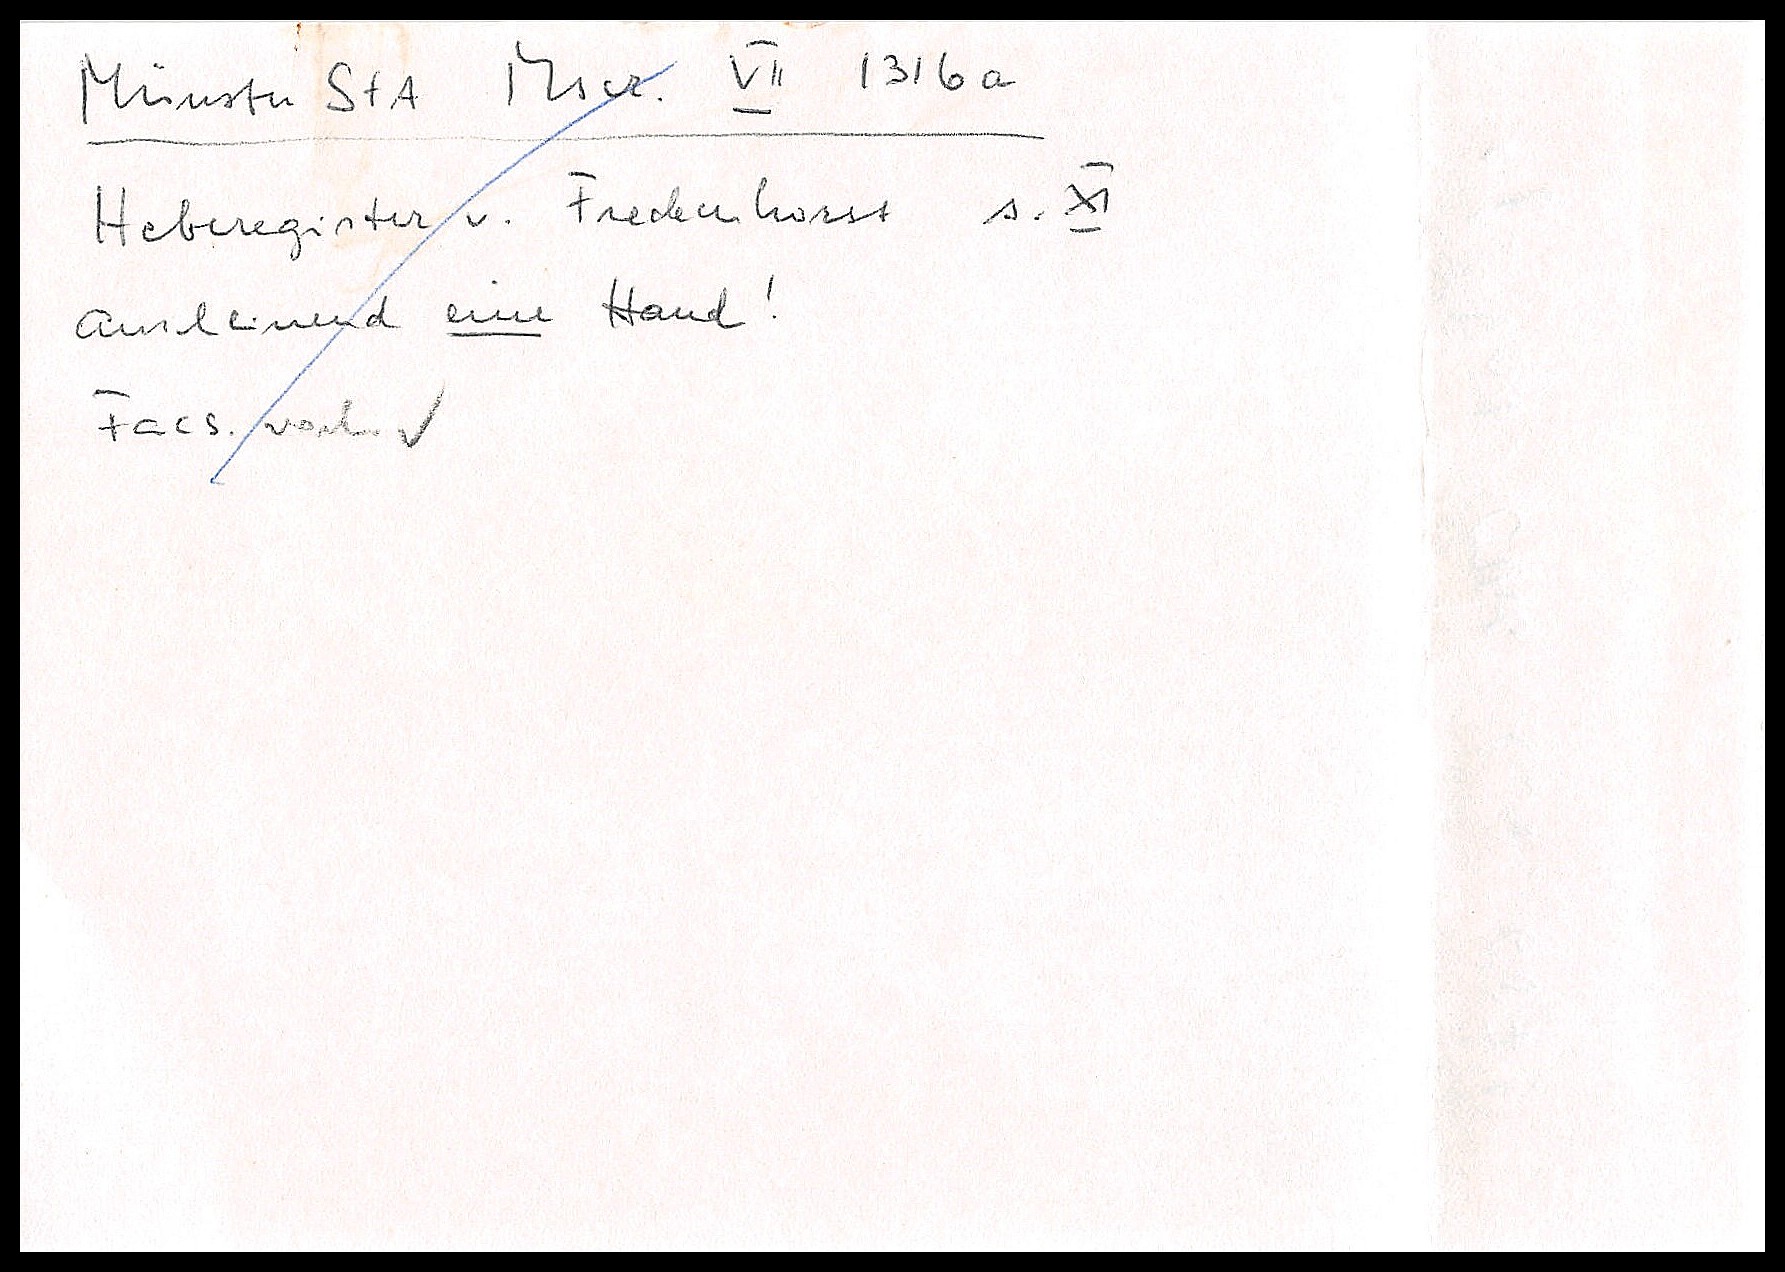 Münster StA Mscr. VII 1316a
Heberegister v. Freckenhorst s. XI
anscheinend eine Hand!
Facs. vorh. ✓